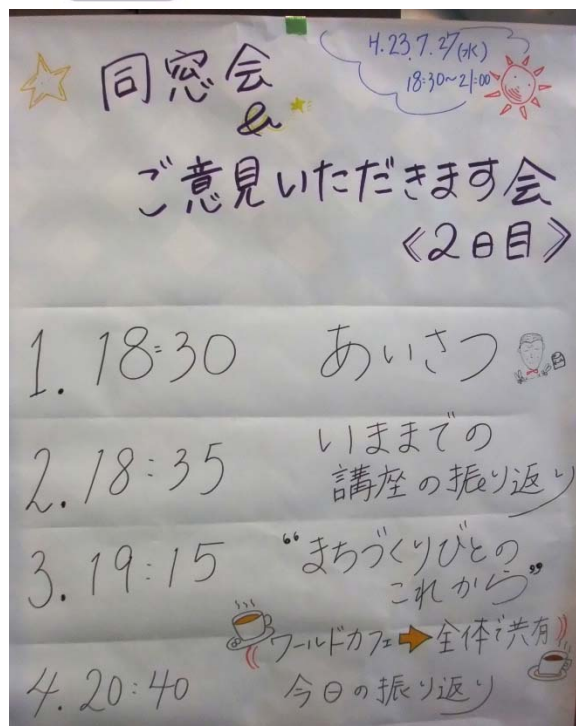 H.23.7.27(水)
18:30~21:00
同窓会
&
ご意見いただきます会
《2日目》
1. 18:30 あいさつ
2. 18:35 いままでの
講座の振り返り
3. 19:15 "まちづくりびとの
これから"
ワールドカフェ➡全体で共有
4. 20:40 今日の振り返り